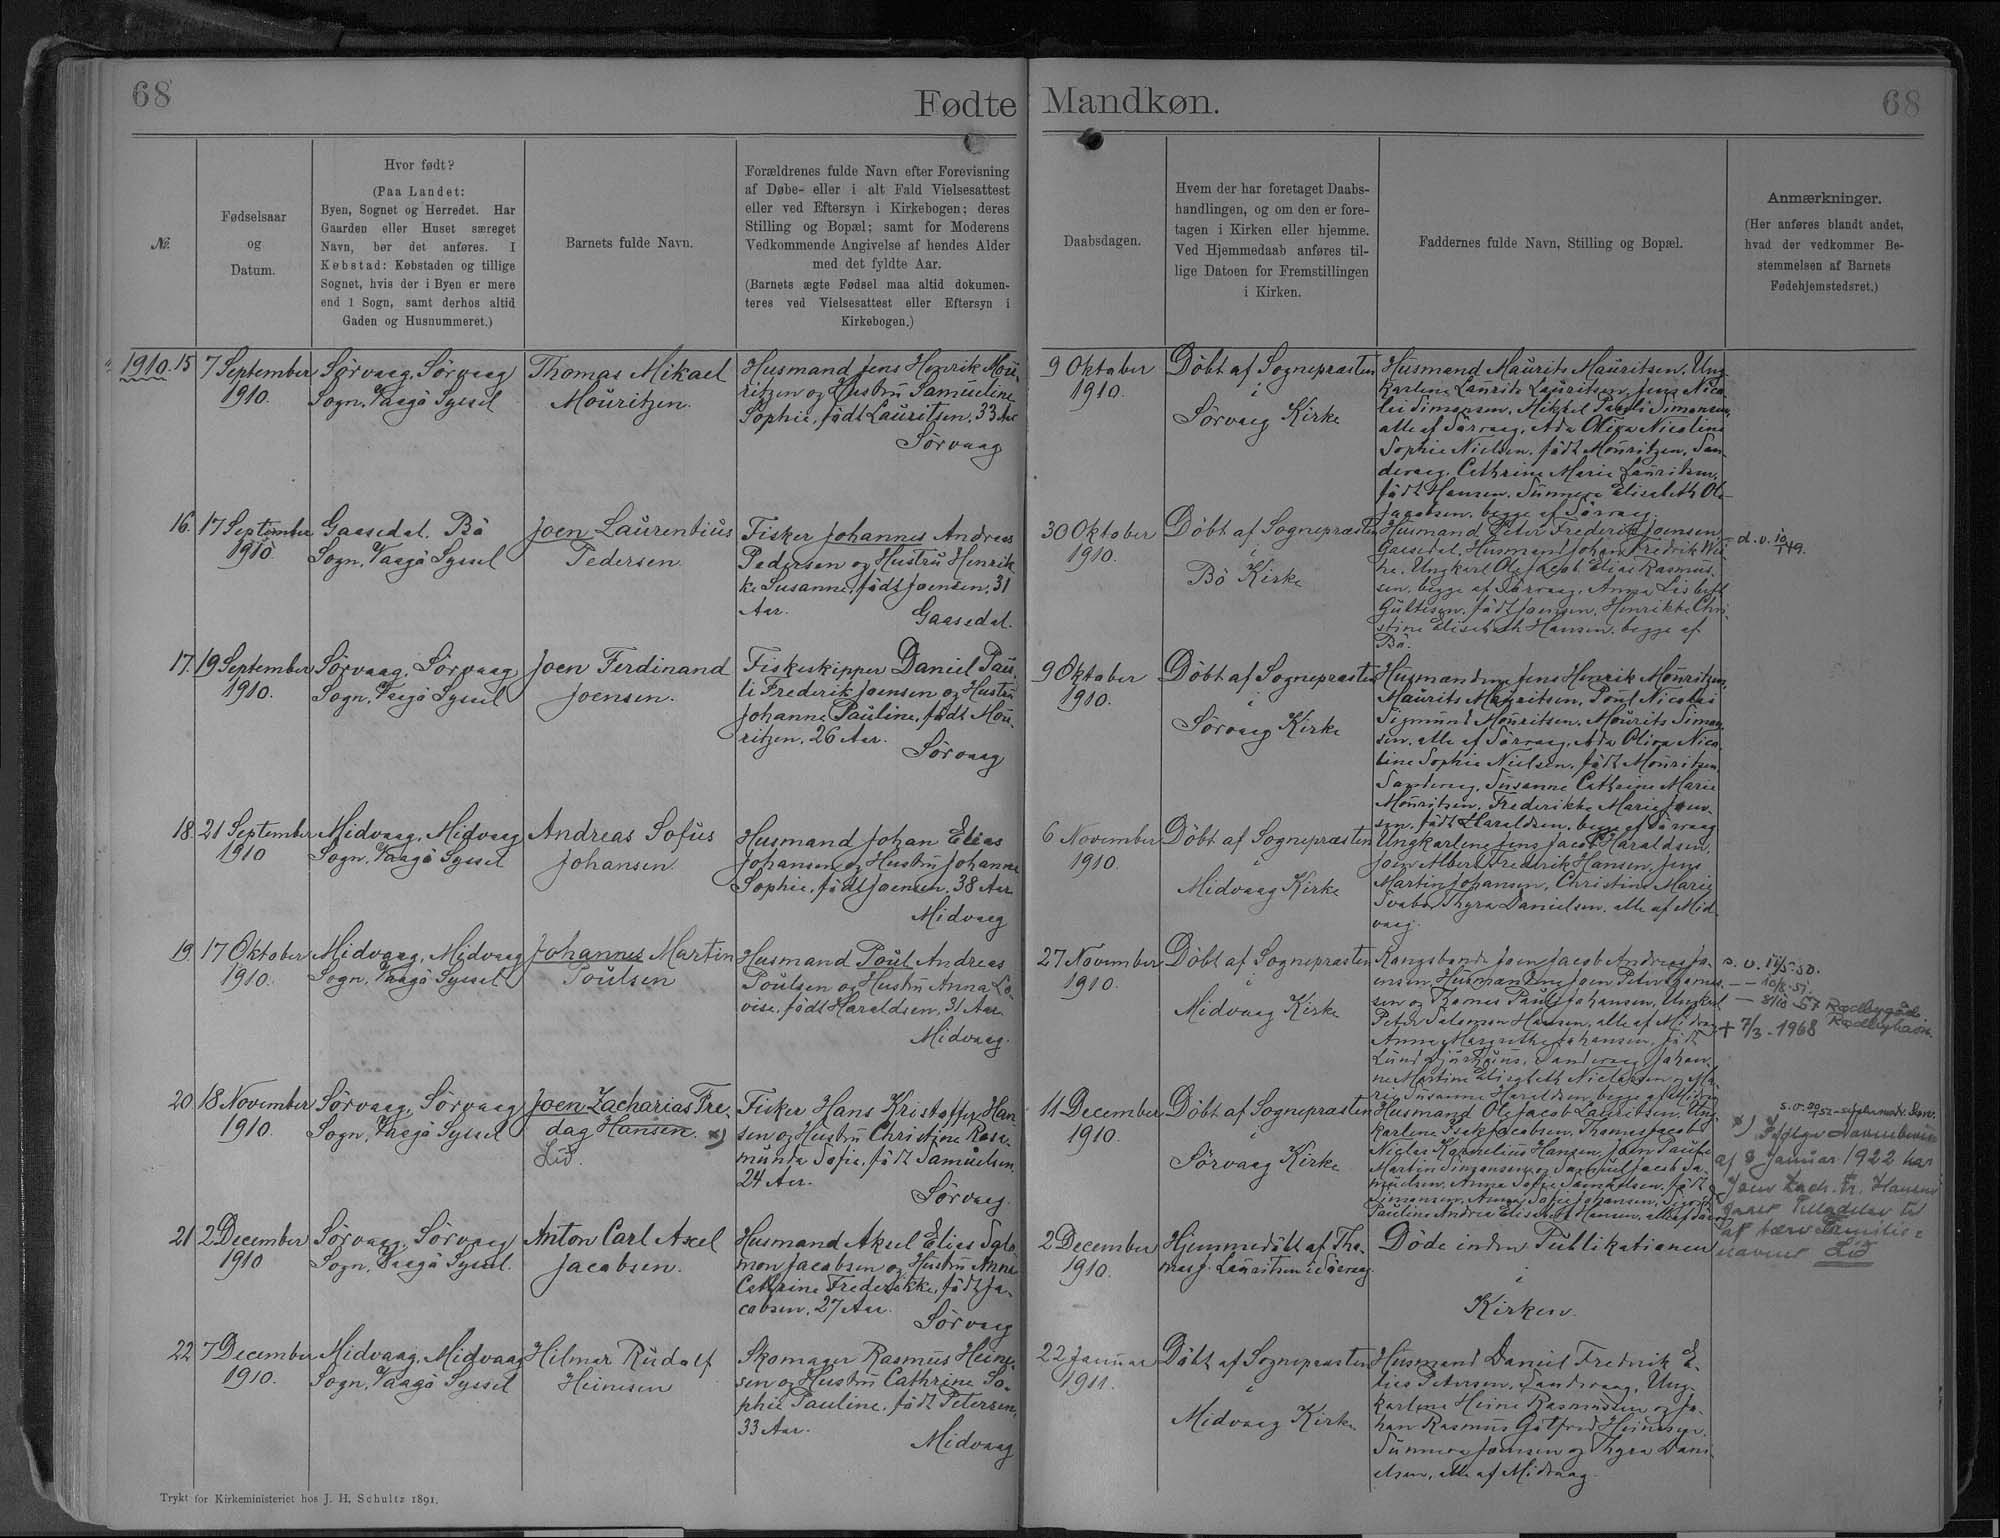 68
Fødte Mandkøn.
68
No.
Fødselsaar
og
Datum.
Hvor født?
(Paa Landet:
Byen, Sognet og Herredet. Har
Gaarden eller Huset særeget
Navn, bør det anføres. I
Købstad: Købstaden og tillige
Sognet, hvis der i Byen er mere
end 1 Sogn, samt derhos altid
Gaden og Husnummeret.)
Barnets fulde Navn.
Forældrenes fulde Navn efter Forevisning
af Døbe- eller i alt Fald Vielsesattest
eller ved Eftersyn i Kirkebogen; deres
Stilling og Bopæl; samt for Moderens
Vedkommende Angivelse af hendes Alder
med det fyldte Aar.
(Barnets ægte Fødsel maa altid dokumen-
teres ved Vielsesattest eller Eftersyn i
Kirkebogen.)
Daabsdagen.
Hvem der har foretaget Daabs-
handlingen, og om den er fore-
tagen i Kirken eller hjemme.
Ved Hjemmedaab anføres til-
lige Datoen for Fremstillingen
i Kirken.
Faddernes fulde Navn, Stilling og Bopæl.
Anmærkninger.
(Her anføres blandt andet,
hvad der vedkommer Be-
stemmelsen af Barnets
Fødehjemstedsret.)
1910. 15
7 September
1910.
Sørvaag, Sørvaag
Sogn, Vaagø Syssel
Thomas Mikael
Mouritzen
Husmand Jens Henrik Mou-
ritzen og Hustru Samueline
Sophie, født Lauritsen, 33 Aar
Sørvaag
9 Oktober
1910.
Døbt af Sognepræsten
i
Sørvaag Kirke
Husmand Maurits Mauritsen, Ung-
karlene Laurits Lauritsen, Jens Nico-
lai Simonsen, Mikkel Simonsen,
alle af Sørvaag, Ada Oliva Nicoline
Sophie Nielsen, født Mouritzen, San-
devaag, Cathrine Marie Lauritsen,
født Hansen, Sunneva Elisabeth
Jacobsen, begge af Sørvaag.
16.
17 September
1910.
Gaasedal, Bø
Sogn, Vaagø Syssel
Joen Laurentius
Pedersen
Fisker Johannes Andreas
Pedersen og Hustru Henrik-
ke Susanne, født Joensen, 31
Aar.
Gaasedal.
30 Oktober
1910.
Døbt af Sognepræsten
i
Bø Kirke
Husmand Peter Frederik Joensen,
Gaasedal, Husmand Johan Fredrik
Ungkarl Ole Jacob Elias Rasmus-
sen, begge af Sørvaag, Anna Lisbeth
født Joensen, Henrikke Chri-
stine Elisabeth Hansen, begge af
Bø.
17.
19 September
1910.
Sørvaag, Sørvaag
Sogn, Vaagø Syssel
Joen Ferdinand
Joensen.
Fiskeskipper Daniel Pau-
li Frederik Joensen og Hustru
Johanne Pauline, født Mou-
ritzen, 26 Aar.
Sørvaag
9 Oktober
1910.
Døbt af Sognepræsten
i
Sørvaag Kirke
Husmændene Jens Henrik Mouritzen,
Maurits Mauritsen, Poul Nicolai
Sigmund Mouritsen, Mourits Simon-
sen, alle af Sørvaag, Ada Oliva Nico-
line Sophie Nielsen, født Mouritzen,
Sandevaag, Susanne Cathrine Marie
Mouritsen, Frederikke Marie Joen-
sen, født Haraldsen, begge af Sørvaag
18.
21 September
1910
Midvaag, Midvaag
Sogn, Vaagø Syssel
Andreas Sofus
Johansen
Husmand Johan Elias
Johansen og Hustru Johanne
Sophie, født Joensen, 38 Aar
Midvaag
6 November
1910.
Døbt af Sognepræsten
i
Midvaag Kirke
Ungkarlene Jens Jacob Haraldsen,
Joen Albert Frederik Hansen, Jens
Martin Johansen, Christine Marie
Svabo, Thyra Danielsen, alle af Mid-
vaag.
19.
17 Oktober
1910.
Midvaag, Midvaag
Sogn, Vaagø Syssel
Johannes Martin
Poulsen
Husmand Poul Andreas
Poulsen og Hustru Anna Lo-
vise, født Haraldsen, 31 Aar
Midvaag.
27 November
1910.
Døbt af Sognepræsten
i
Midvaag Kirke
Kongsbonde Joen Jacob Andreas Jo-
ensen, Husmændene Joen Peter
sen og Thomas Pauli Johansen, Ungkarl
Peter Salomon Hansen, alle af Midvaag,
Anna Margrethe Johansen, født
Sandevaag, Johan-
ne Martine Elisabeth Nielsen og Ma-
rie Susanne Haraldsen, begge af Midvaag
+ 7/3-1968
20
18 November
1910.
Sørvaag, Sørvaag
Sogn, Vaagø Syssel
Joen Zacharias Fre-
dag Hansen. x)
Lid.
Fisker Hans Kristoffer Han-
sen og Hustru Christine Rosa-
munda Sofie, født Samuelsen,
24 Aar.
Sørvaag.
11 December
1910.
Døbt af Sognepræsten
i
Sørvaag Kirke
Husmand Ole Jacob Lauritsen, Ung-
karlene Isak Jacobsen, Thomas Jacob
Niclas Kornelius Hansen, Joen Pauli
Martin Simonsen og Samuel Jacob Sa-
muelsen, Anna Sofie Samuelsen, født
Simonsen, Anna Sofie Johansen,
Pauline Andrea Elisabeth Hansen, alle af Sørvaag
x) Ifølge Navnebevis
af 8 Januar 1922 har
Joen Zach. Fr. Hansen
faaet Tilladelse til
at bære Familie-
navnet Lid
21
2 December
1910
Sørvaag, Sørvaag
Sogn, Vaagø Syssel.
Anton Carl Axel
Jacobsen.
Husmand Aksel Elias Salo-
mon Jacobsen og Hustru Anna
Cathrine Frederikke, født Ja-
cobsen, 27 Aar.
Sørvaag
2 December
1910.
Hjemmedøbt af Tho-
mas J. Lauritsen i Sørvaag.
Døde inden Publikationen
i
Kirken.
22
7 December
1910.
Midvaag, Midvaag
Sogn, Vaagø Syssel
Hilmar Rudolf
Heinesen
Skomager Rasmus Heine-
sen og Hustru Cathrine So-
phie Pauline, født Petersen,
33 Aar.
Midvaag
22 Januar
1911.
Døbt af Sognepræsten
i
Midvaag Kirke
Husmand Daniel Fredrik E-
lias Petersen, Sandevaag, Ung-
karlene Heine Rasmussen og Jo-
han Rasmus Gotfred Heinesen,
Sunneva Joensen og Thyra Dani-
elsen, alle af Midvaag.
Trykt for Kirkeministeriet hos J. H. Schultz 1891.